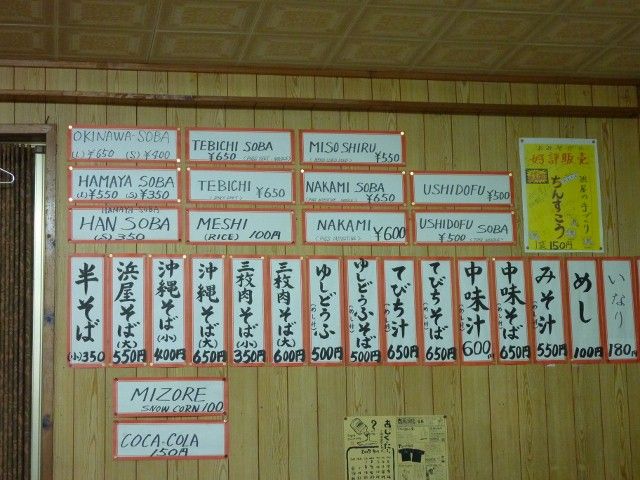 OKINAWA-SOBA
(L) ¥650 (S) ¥400
TEBICHI SOBA
¥650
MISO SHIRU
¥550
HAMAYA SOBA
(L) ¥550 (S) ¥350
TEBICHI ¥650
NAKAMI SOBA
¥650
USHIDOFU ¥500
HAMAYA SOBA
HAN SOBA
(S) 350
MESHI
(RICE) 100円
NAKAMI ¥600
USHIDOFU SOBA
¥500
好評販売
浜屋の手づくり
ちんすこう
1袋150円
半そば
(小)350
浜屋そば(大)
550円
沖縄そば(小)
400円
沖縄そば(大)
650
三枚肉そば(小)
350円
三枚肉そば(大)
600円
ゆしどうふ
(めし付)
500円
ゆしどうふそば
500円
てびち汁
(めし付)
650円
てびちそば
650円
中味汁
(めし付)
600円
中味そば
650円
みそ汁
(めし付)
550円
めし
100円
いなり
180円
MIZORE
SNOW CORN 100
COCA-COLA
150円